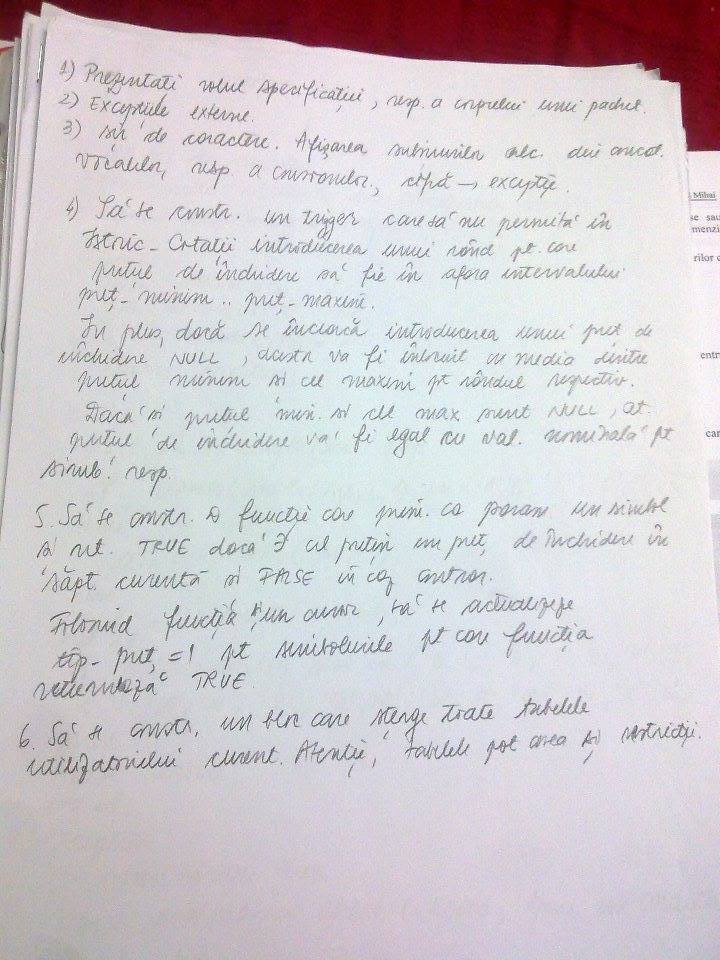 1) Prezentati rolul specificației, resp. a corpului unui pachet.
2) Excepțiile externe.
3) Șir de caractere. Afișarea subșirurilor alc. din
vocalelor, resp a consoanelor, cifră → excepție.
4) Să se constr. un trigger care să nu permită în
Istoric_Cotații introducerea unui rând pt. care
prețul de închidere să fie în afara intervalului
preț_minim .. preț_maxim.
In plus, dacă se încearcă introducerea unui preț de
închidere NULL, acesta va fi înlocuit cu media dintre
prețul minim si cel maxim pt rândul respectiv.
Dacă si prețul min. si cel max sunt NULL, at.
prețul de închidere va fi egal cu val. nominală pt
simb. resp.
5. Să se constr. o funcție care prim. ca param un simbol
si ret. TRUE dacă ∃ cel puțin un preț de închidere în
săpt. curentă si FALSE în caz contrar.
Folosind funcția si un cursor, să se actualizeze
tip_preț = 1 pt simbolurile pt care funcția
returnează TRUE.
6. Să se constr. un bloc care șterge toate tabelele
utilizatorului curent. Atenție, tabelele pot avea și restricții.
Mihai
se sau
menzi
rilor c
entr
car